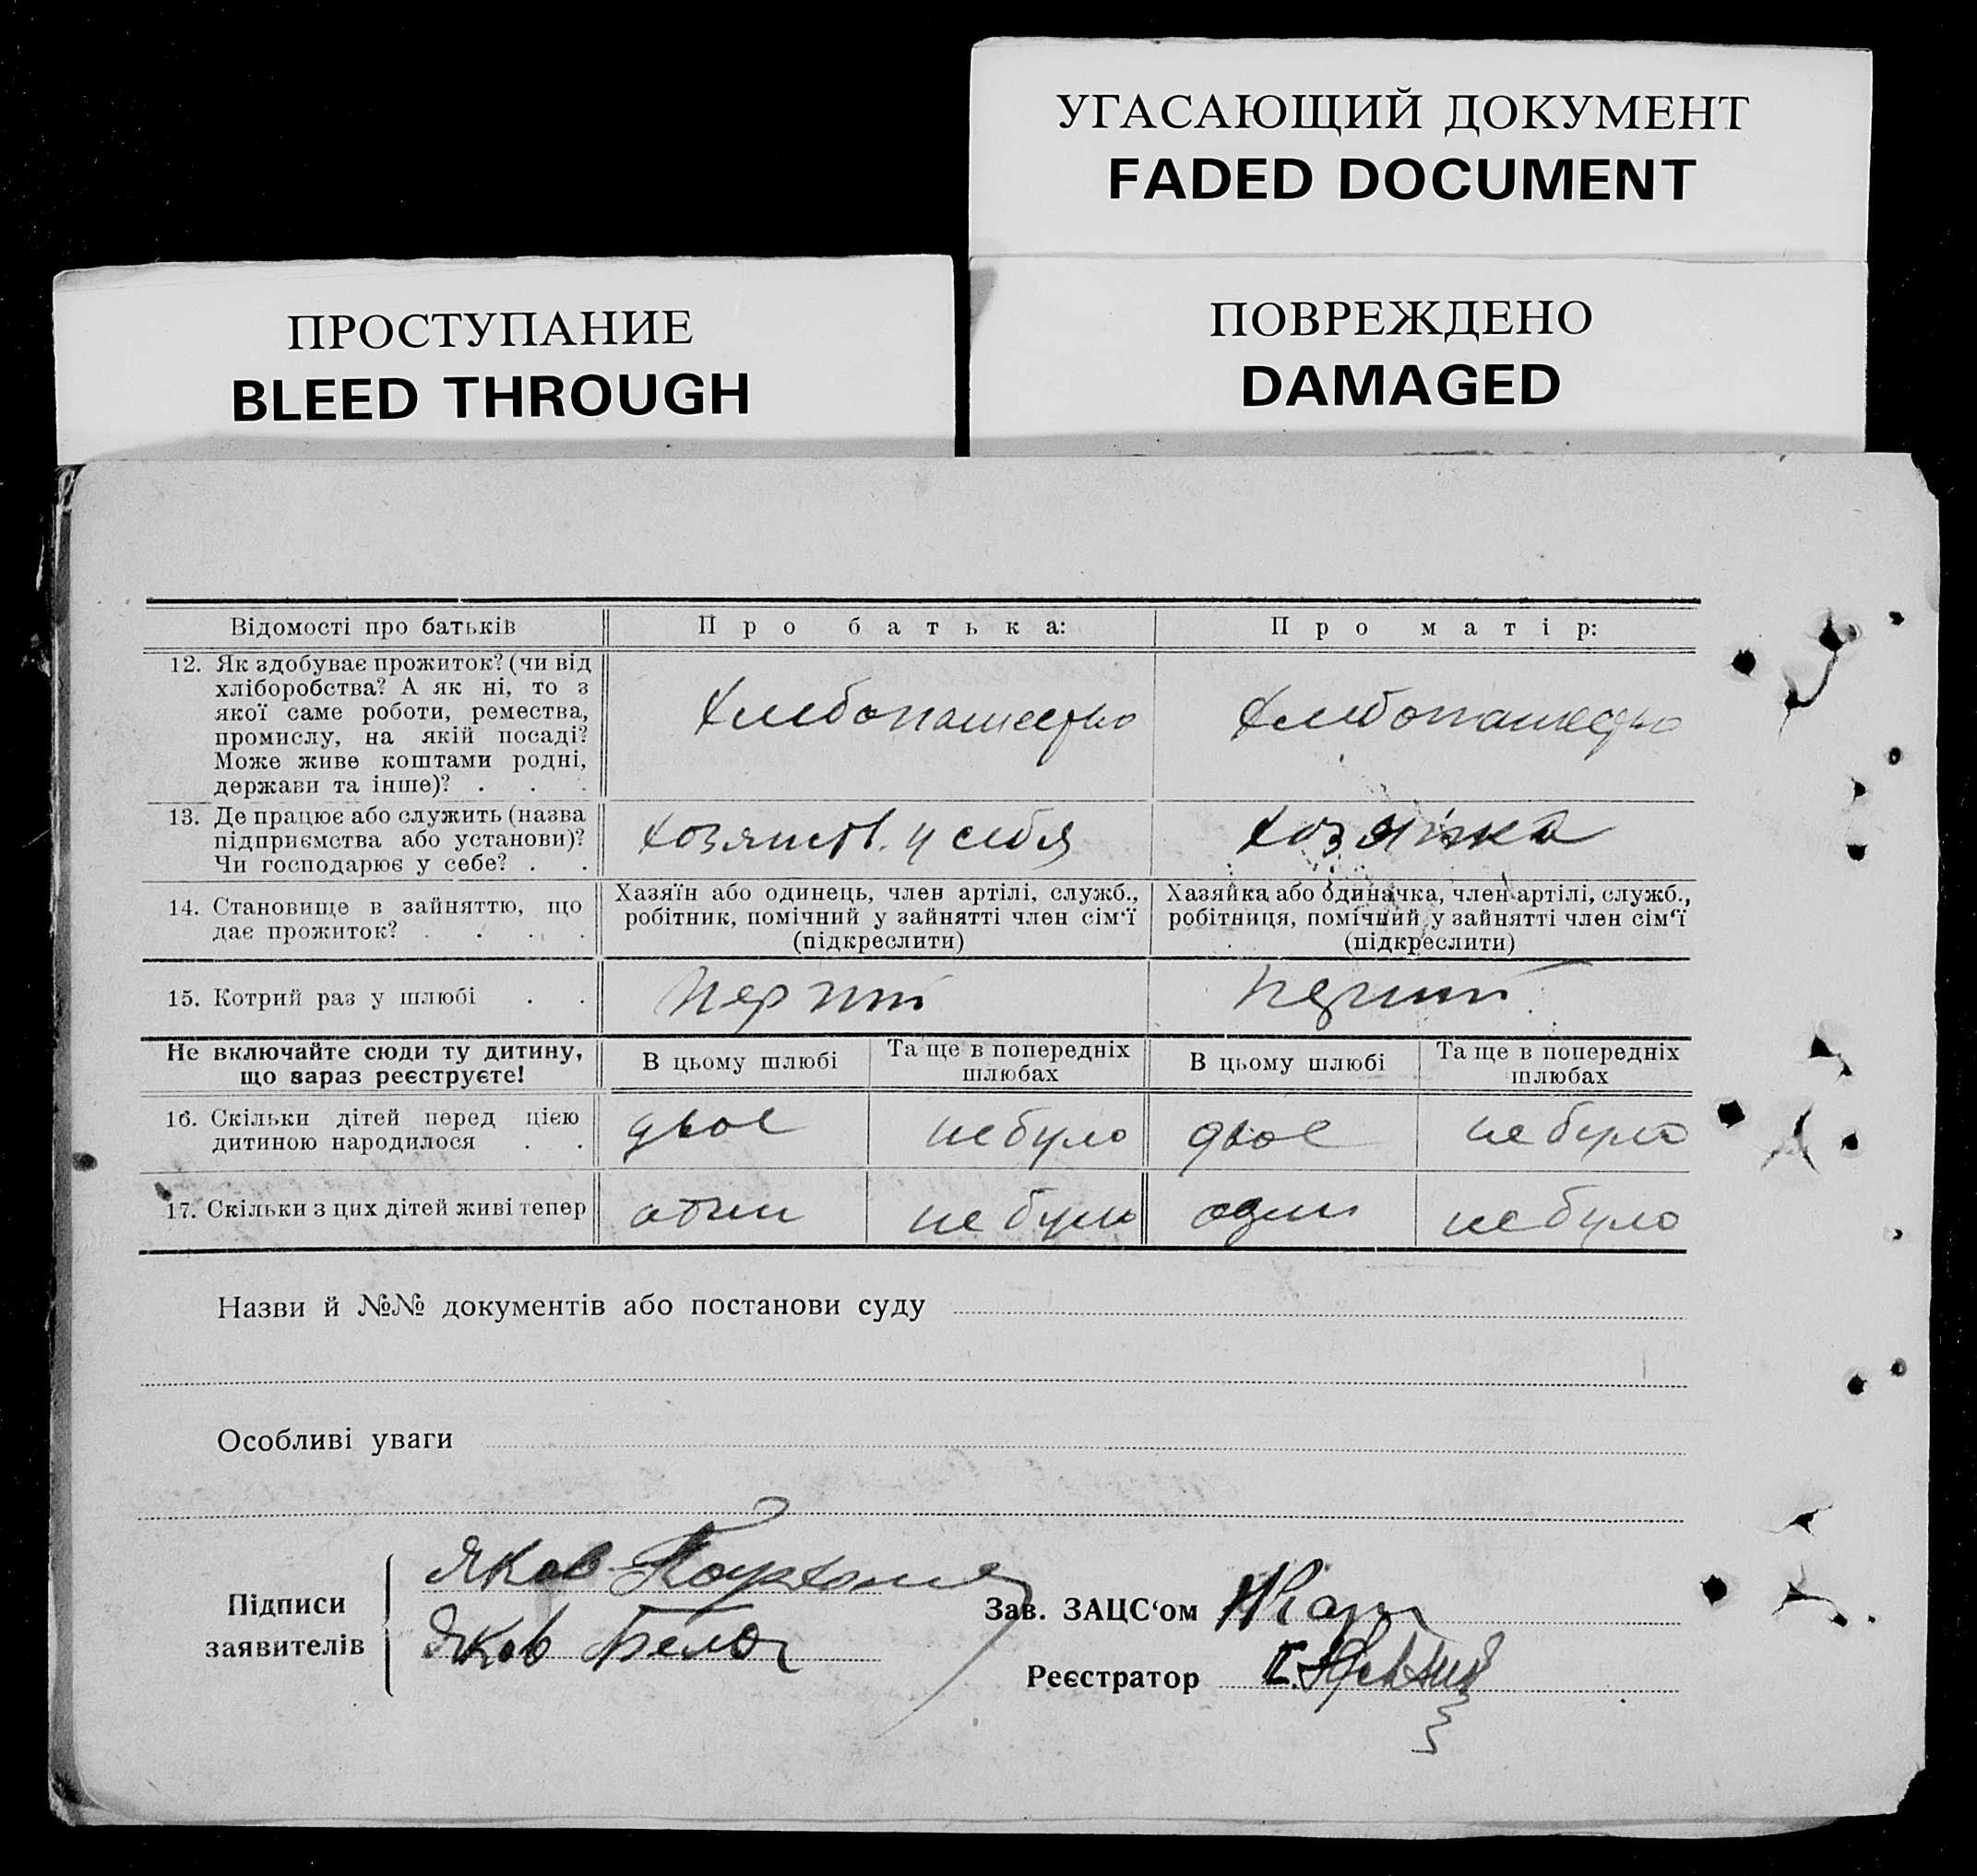 УГАСАЮЩИЙ ДОКУМЕНТ
FADED DOCUMENT
ПРОСТУПАНИЕ
BLEED THROUGH
ПОВРЕЖДЕНО
DAMAGED
Відомості про батьків
Про батька:
Про матір:
12. Як здобуває прожиток? (чи від
хліборобства? А як ні, то з
якої саме роботи, ремества,
промислу, на якій посаді?
Може живе коштами родні,
держави та інше)? . . .
хлебопашество
хлебопашество
13. Де працює або служить (назва
підприємства або установи)?
Чи господарює у себе? . .
хозяиств. у себя
хозяйка
14. Становище в зайняттю, що
дає прожиток? . . . .
Хазяїн або одинець, член артілі, служб.,
робітник, помічний у зайнятті член сім‘ї
(підкреслити)
Хазяйка або одиначка, член артілі, служб.,
робітниця, помічний у зайнятті член сім‘ї
(підкреслити)
15. Котрий раз у шлюбі . .
Не включайте сюди ту дитину,
що зараз реєструєте!
В цьому шлюбі
Та ще в попередніх
шлюбах
В цьому шлюбі
Та ще в попередніх
шлюбах
16. Скільки дітей перед цією
дитиною народилося . .
двое
не було
двое
не було
17. Скільки з цих дітей живі тепер
один
не було
один
не було
Назви й №№ документів або постанови суду
Особливі уваги
Підписи
заявителів
Яков
Яков
Зав. ЗАЦС‘ом
Реєстратор